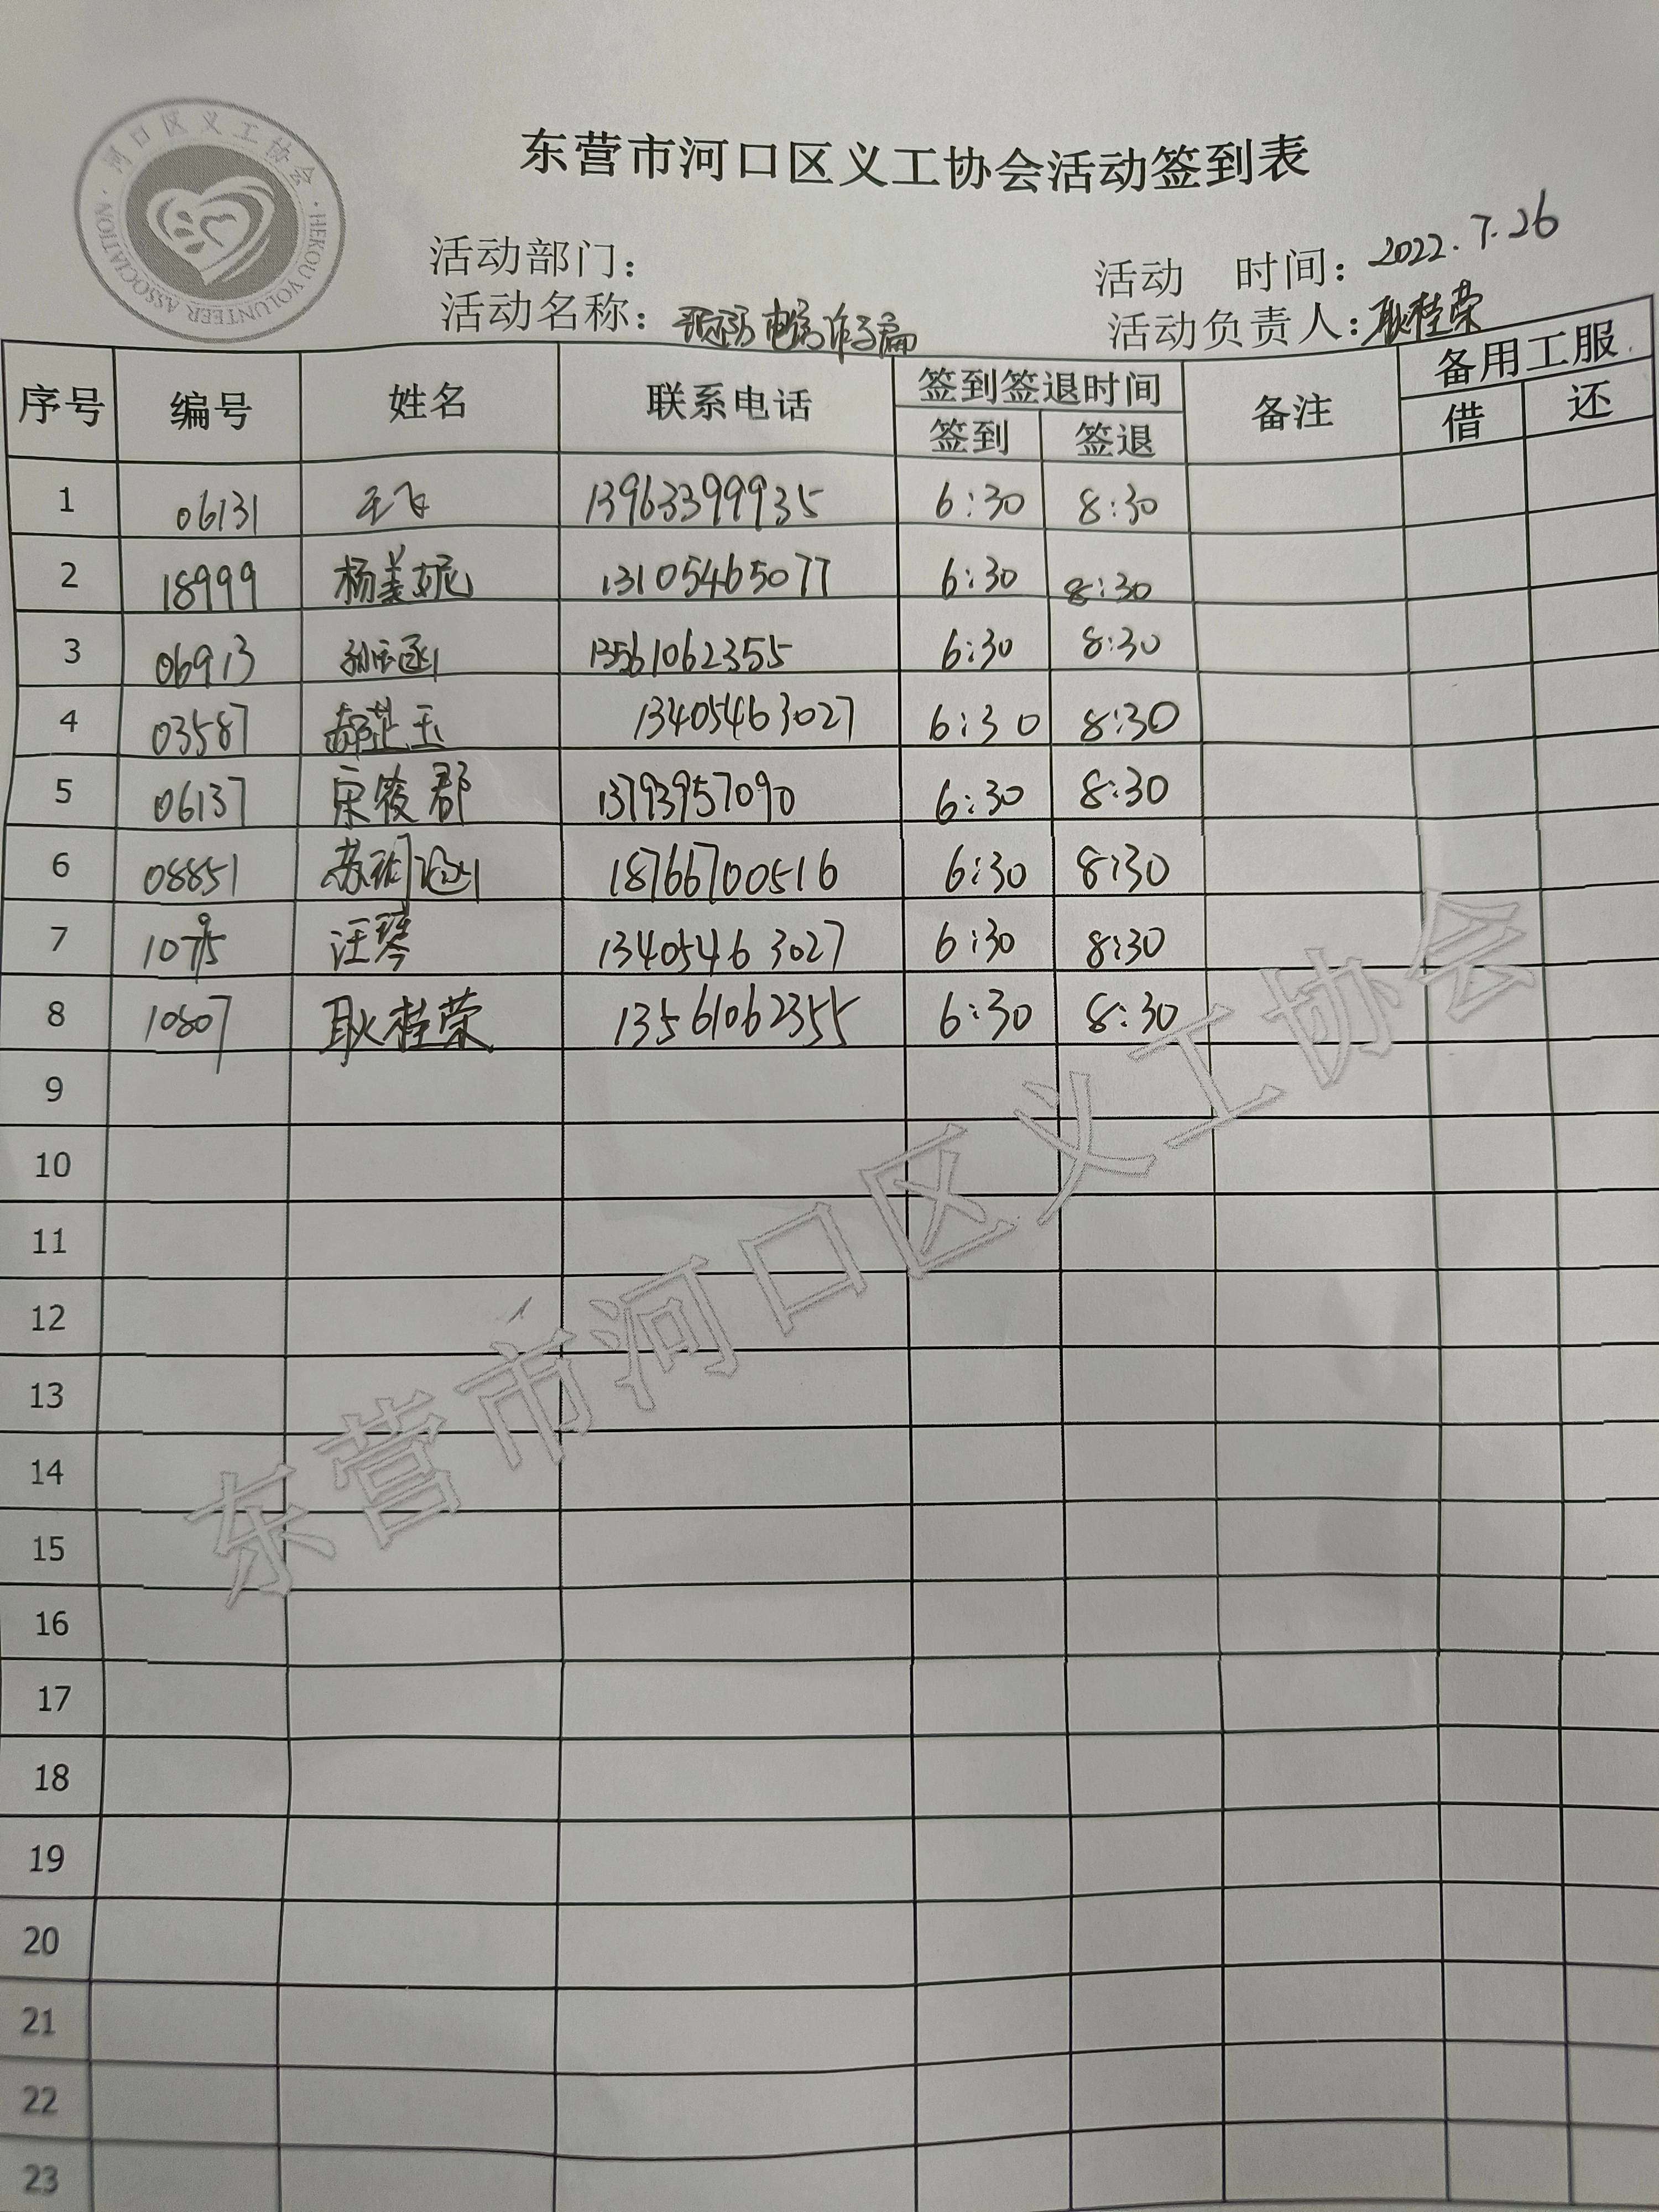 河口区义工协会
HEKOU VOLUNTEER ASSOCIATION
东营市河口区义工协会活动签到表
活动部门：
活动 时间：2022.7.26
活动名称：预防电信诈骗
活动负责人：耿桂荣
序号 编号 姓名 联系电话 签到签退时间 备注 备用工服
签到 签退 借 还
1 06131 王飞 13963399935 6:30 8:30
2 18999 杨美妮 13105465077 6:30 8:30
3 06913 13561062355 6:30 8:30
4 03587 郝芷玉 13405463027 6:30 8:30
5 06137 宋筱郡 13793957090 6:30 8:30
6 08851 18766700516 6:30 8:30
7 汪琴 13405463027 6:30 8:30
8 10807 耿桂荣 13561062355 6:30 8:30
9
10
11
12
13
14
15
16
17
18
19
20
21
22
23
东营市河口区义工协会